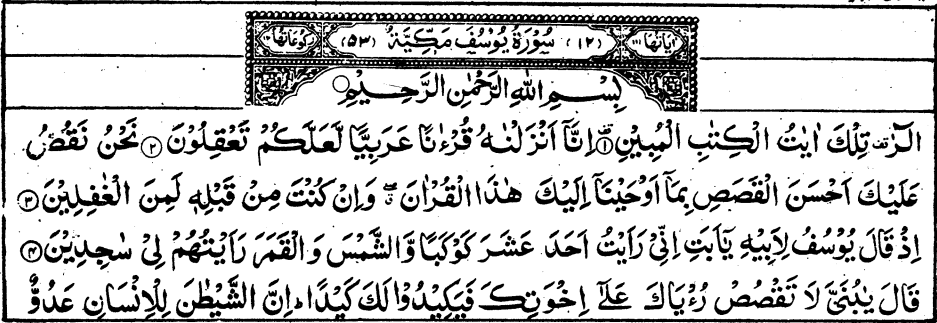 اٰيَاتُهَا ١١١ (١٢) سُوْرَةُ يُوْسُفَ مَكِّيَّةٌ (٥٣) رُكُوْعَاتُهَا ١٢
بِسْمِ اللهِ الرَّحْمٰنِ الرَّحِيْمِ
الٓرٰ تِلْكَ اٰيٰتُ الْكِتٰبِ الْمُبِيْنِ ۝١ اِنَّآ اَنْزَلْنٰهُ قُرْءٰنًا عَرَبِيًّا لَّعَلَّكُمْ تَعْقِلُوْنَ ۝٢ نَحْنُ نَقُصُّ
عَلَيْكَ اَحْسَنَ الْقَصَصِ بِمَآ اَوْحَيْنَآ اِلَيْكَ هٰذَا الْقُرْاٰنَ وَاِنْ كُنْتَ مِنْ قَبْلِهٖ لَمِنَ الْغٰفِلِيْنَ ۝٣
اِذْ قَالَ يُوْسُفُ لِاَبِيْهِ يٰٓاَبَتِ اِنِّيْ رَاَيْتُ اَحَدَ عَشَرَ كَوْكَبًا وَّالشَّمْسَ وَالْقَمَرَ رَاَيْتُهُمْ لِيْ سٰجِدِيْنَ ۝٤
قَالَ يٰبُنَيَّ لَا تَقْصُصْ رُءْيَاكَ عَلٰٓى اِخْوَتِكَ فَيَكِيْدُوْا لَكَ كَيْدًا اِنَّ الشَّيْطٰنَ لِلْاِنْسَانِ عَدُوٌّ